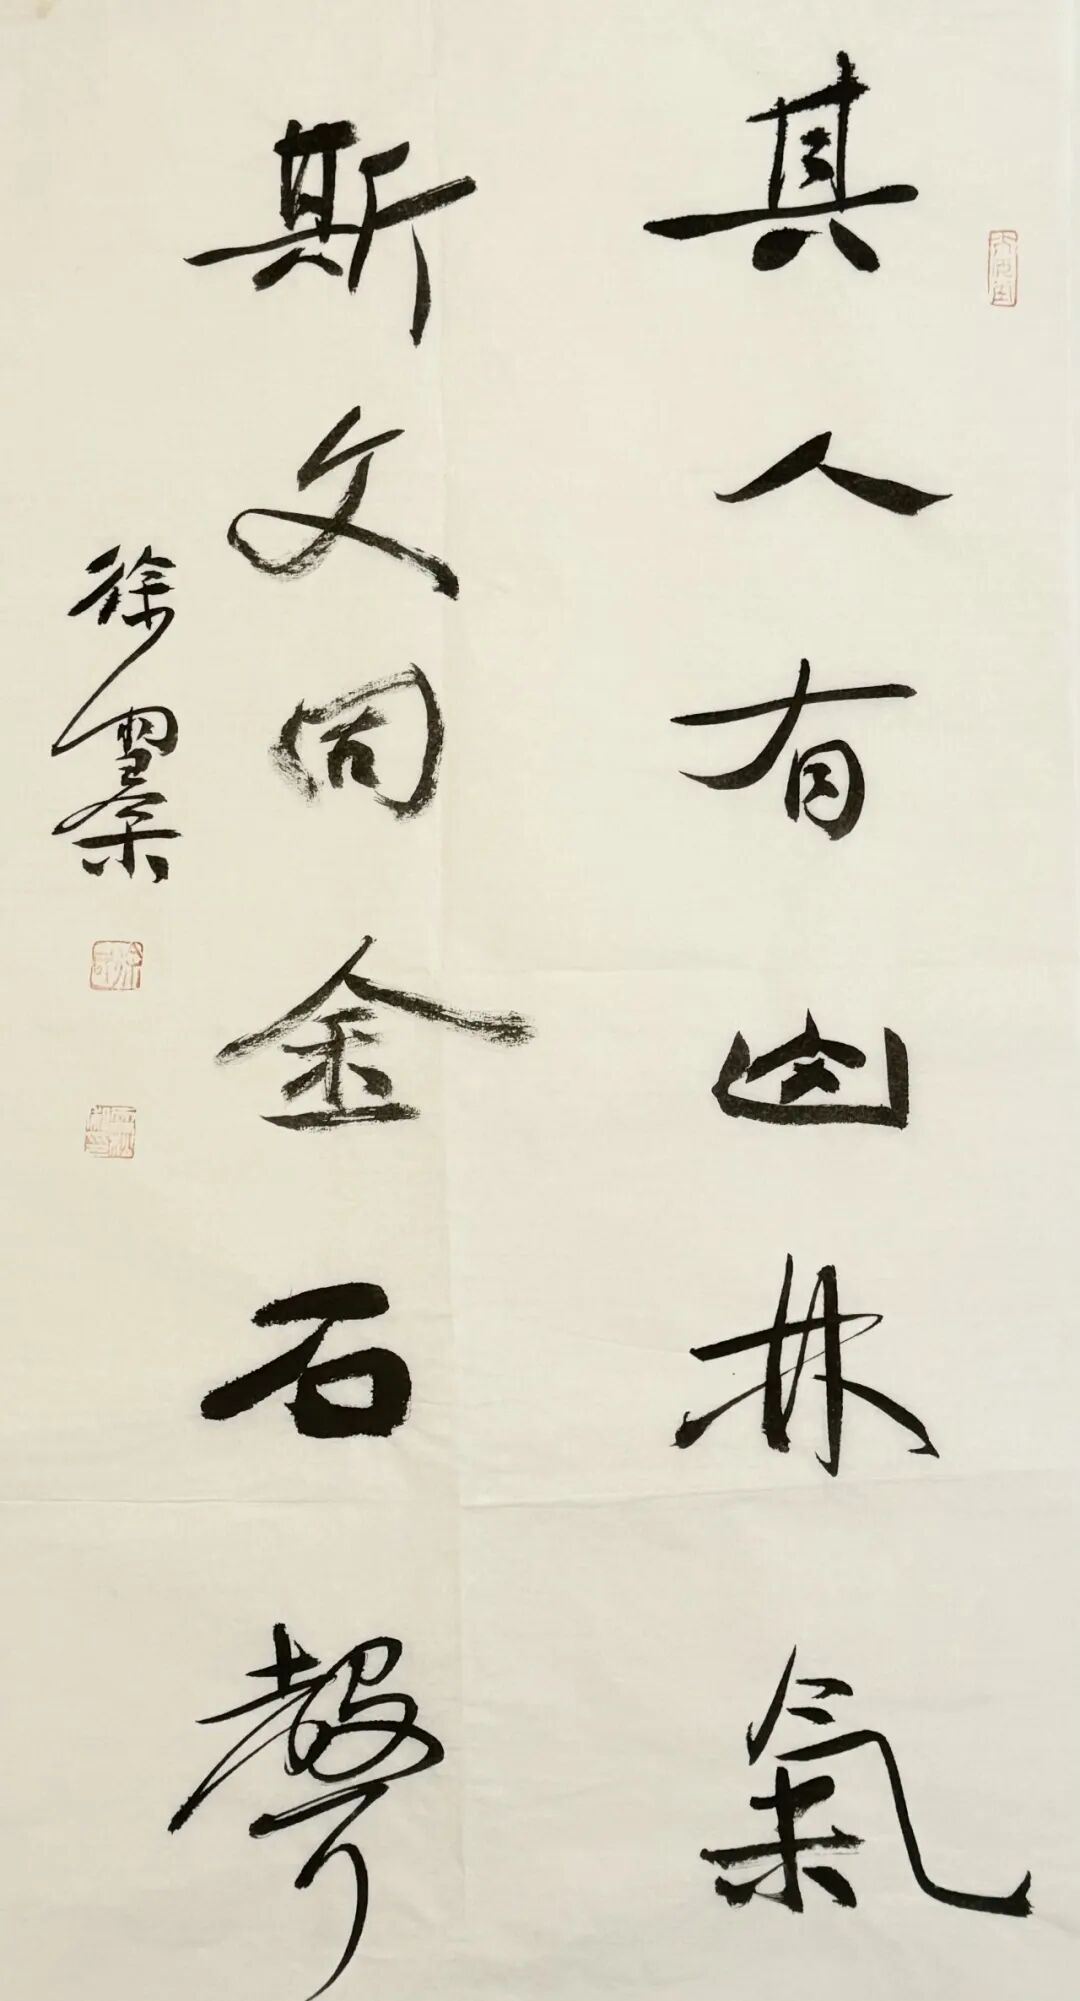 其人有山林氣
斯文同金石聲
徐